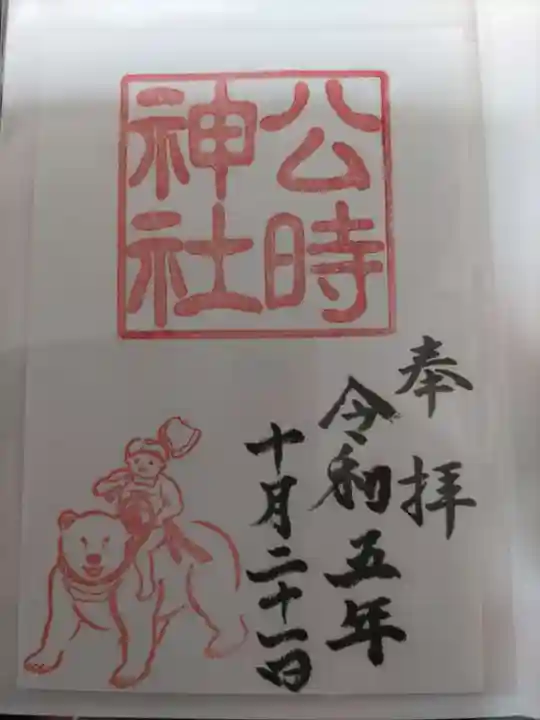 公時
神社
奉拝
令和五年
十月二十一日